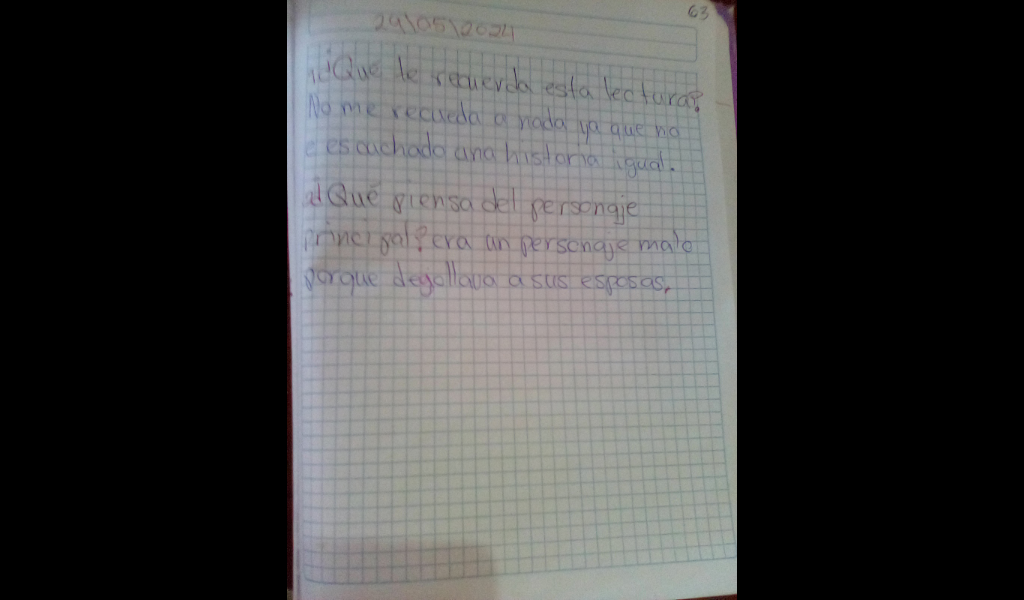 63
29\05\2024
1¿Que le recuerda esta lectura?
No me recueda a nada ya que no
e escuchado una historia igual.
2¿Qué piensa del personaje
principal? era un personaje malo
porque degollava a sus esposas.